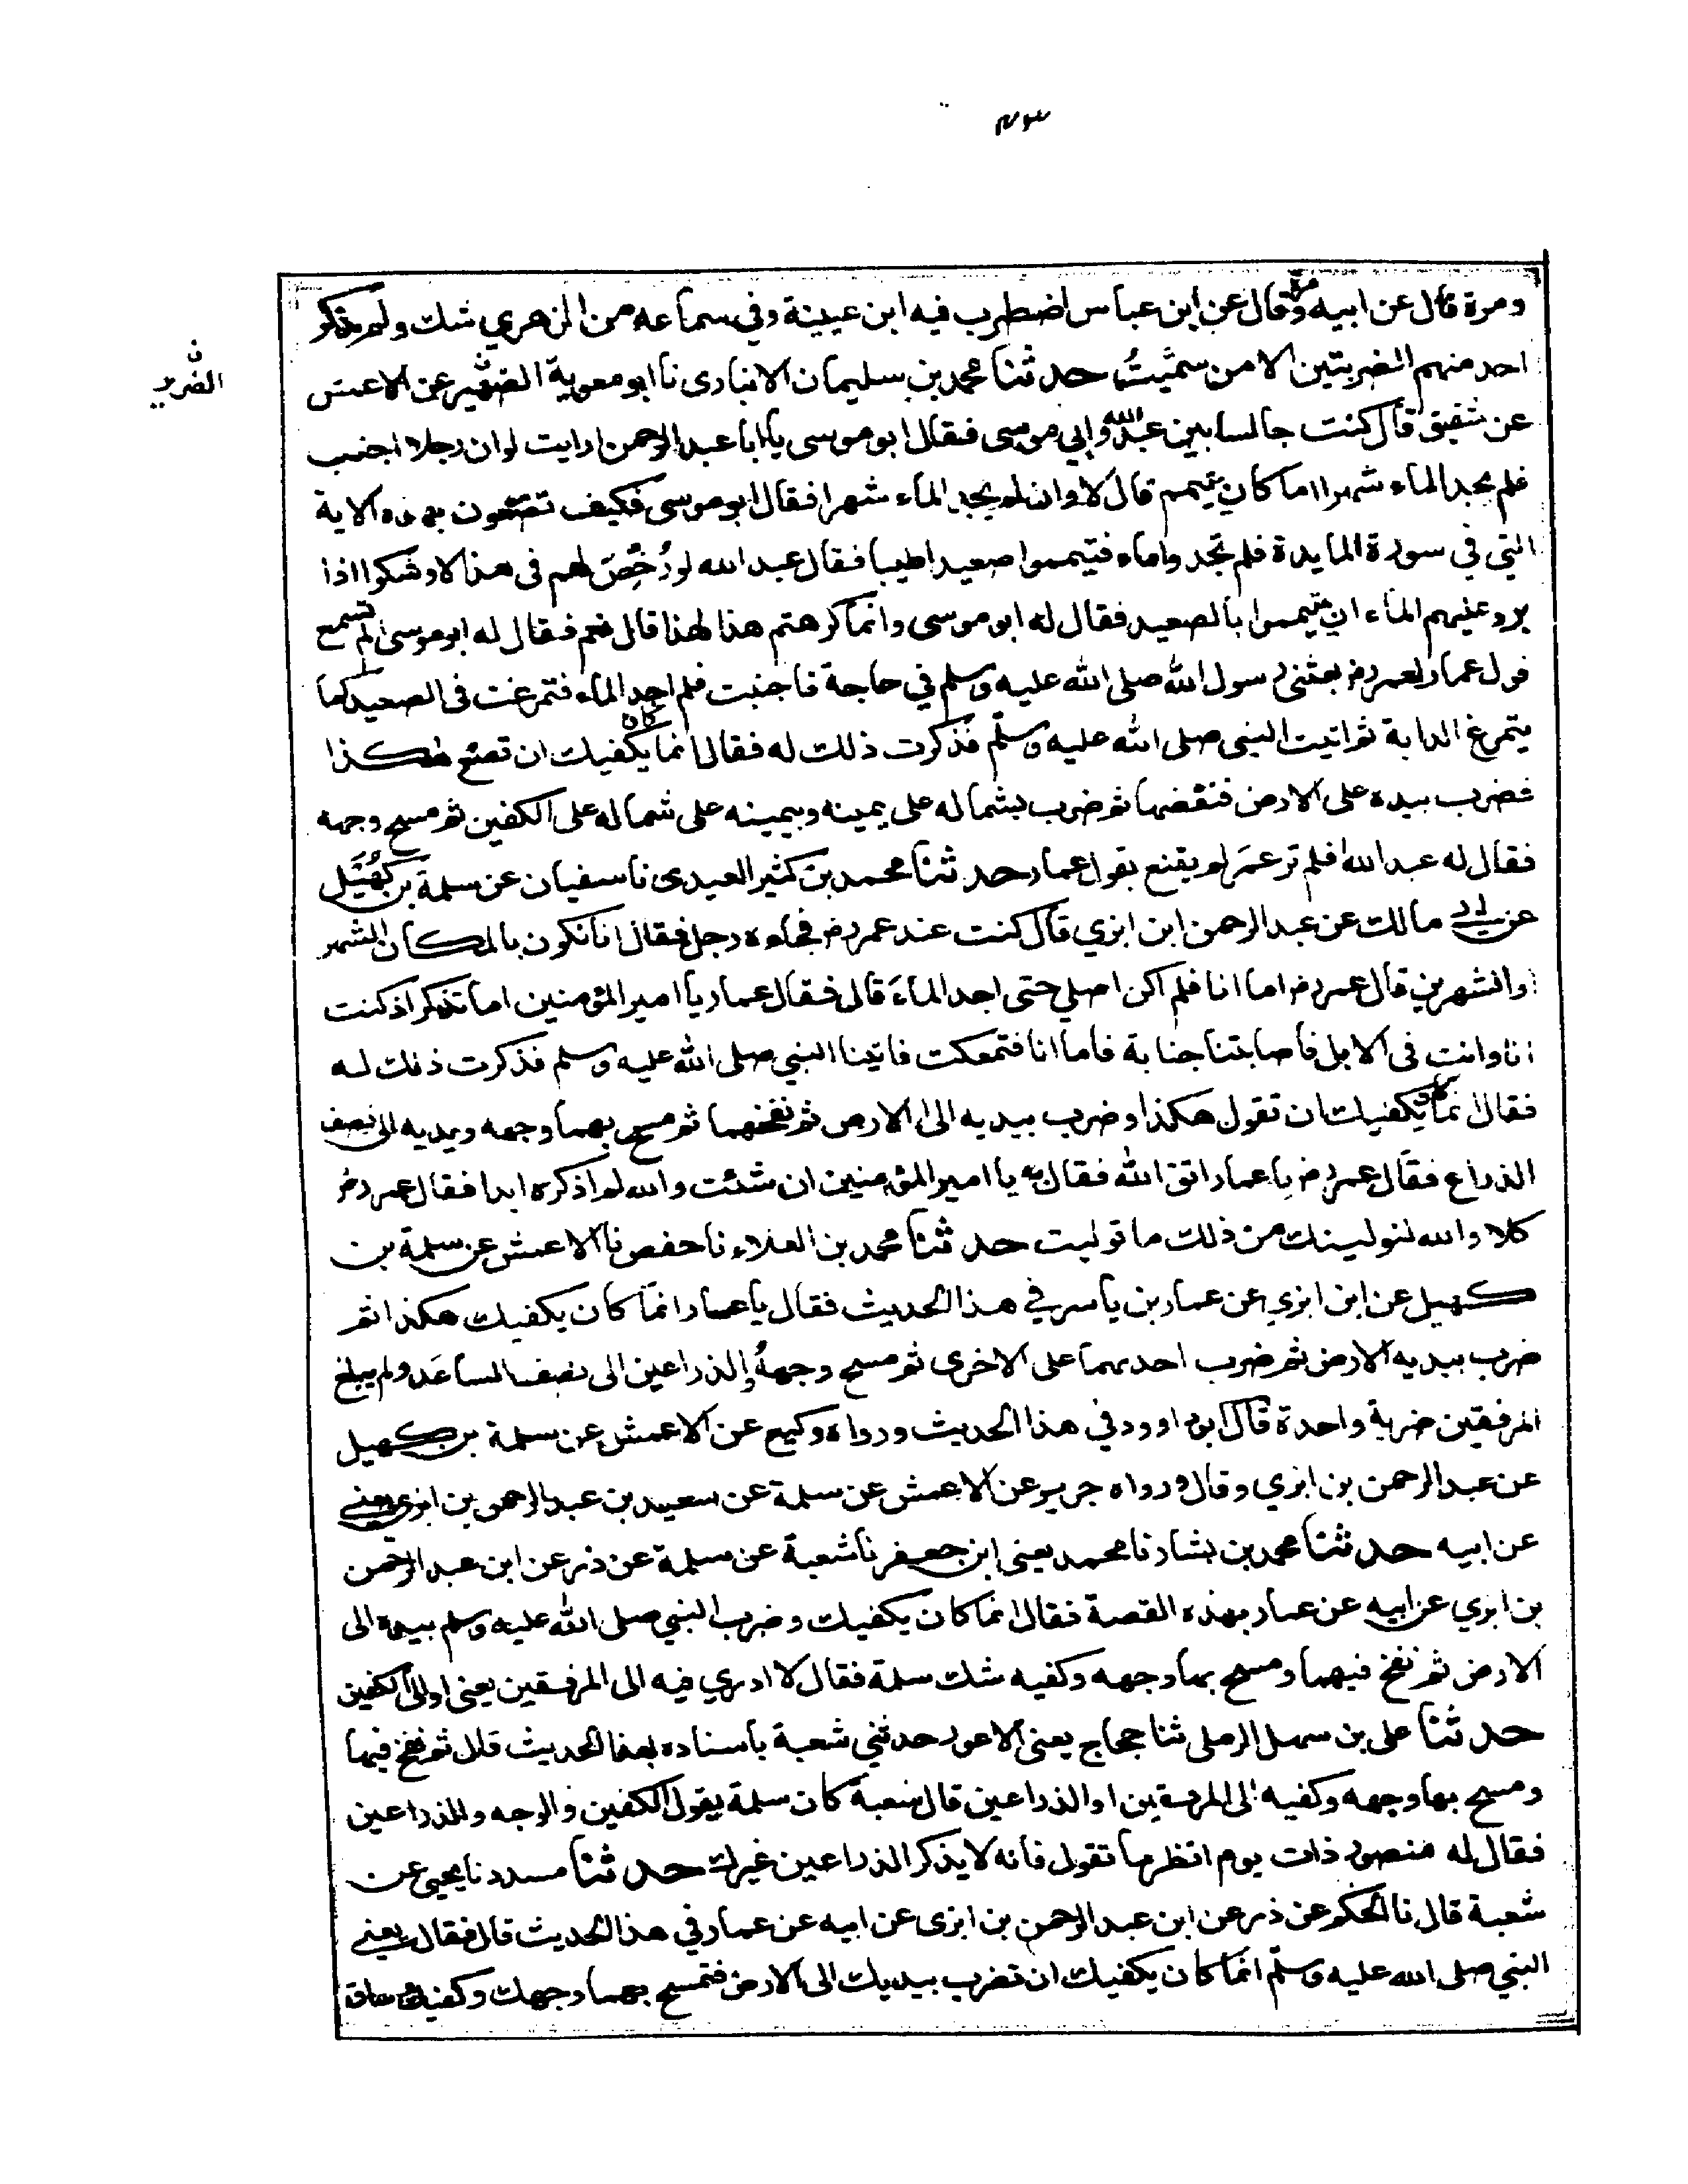 ومرة قال عن ابيه ومرة قال عن ابن عباس اضطرب فيه ابن عيينة وفي سماعه من الزهري شك ولم يذكر
احد منهم الضربتين الا من سميتُ حدثنا محمد بن سليمان الانبارى نا ابو معوية الضرير عن الاعمش
الضرير
عن شقيق قال كنت جالسا بين عبد الله وابي موسى فقال ابو موسى يا ابا عبد الرحمن ارايت لو ان رجلا اجنب
فلم يجد الماء شهرا اما كان يتيمم قال لا وان لم يجد الماء شهرا فقال ابو موسى فكيف تصنعون بهذه الاية
التي في سورة المايدة فلم تجدوا ماء فتيمموا صعيدا طيبا فقال عبد الله لو رُخِّصَ لهم فى هذا لاوشكوا اذا
برد عليهم الماء ان يتيمموا بالصعيد فقال له ابو موسى وانما كرهتم هذا لهذا قال نعم فقال له ابو موسى الم تسمع
قول عمار لعمر رض بعثنى رسول الله صلى الله عليه وسلم في حاجة فاجنبت فلم اجد الماء فتمرغت فى الصعيد كما
يتمرغ الدابة ثم اتيت النبي صلى الله عليه وسلم فذكرت ذلك له فقال انما كان يكفيك ان تصنع هكذا
فضرب بيده على الارض فنفضها ثم ضرب بشماله على يمينه وبيمينه على شماله على الكفين ثم مسح وجهه
فقال له عبد الله افلم تر عمرَ لم يقنع بقول عمار حدثنا محمد بن كثير العبدى نا سفيان عن سلمة بن كُهَيل
عن ابى مالك عن عبد الرحمن ابن ابزي قال كنت عند عمر رض فجاءه رجل فقال انا نكون بالمكان الشهر
او الشهرين قال عمر رض اما انا فلم اكن اصلي حتى اجد الماءَ قال فقال عمار يا امير المؤمنين اما تذكر اذ كنت
انا وانت فى الابل فاصابتنا جنابة فاما انا فتمعكت فاتينا النبي صلى الله عليه وسلم فذكرت ذلك له
فقال انما كان يكفيك ان تقول هكذا وضرب بيديه الى الارض ثم نفخهما ثم مسح بهما وجهه ويديه الى نصف
الذراع فقال عمر رض يا عمار اتق الله فقال يا امير المؤمنين ان شئت والله لم اذكره ابدا فقال عمر رض
كلا والله لنولينك من ذلك ما توليت حدثنا محمد بن العلاء نا حفص نا الاعمش عن سلمة بن
كهيل عن ابن ابزي عن عمار بن ياسر في هذا الحديث فقال يا عمار انما كان يكفيك هكذا ثم
ضرب بيديه الارض ثم ضرب احدىهما على الاخرى ثم مسح وجههُ والذراعين الى نصف الساعَد ولم يبلغ
المرفقين ضربة واحدة قال ابو داوود في هذا الحديث ورواه وكيع عن الاعمش عن سلمة بن كهيل
عن عبد الرحمن بن ابزي وقال ورواه جرير عن الاعمش عن سلمة عن سعيد بن عبد الرحمن بن ابزى يعني
عن ابيه حدثنا محمد بن بشار نا محمد يعنى ابن جعفر نا شعبة عن سلمة عن ذر عن ابن عبد الرحمن
بن ابزي عن ابيه عن عمار بهذه القصة فقال انما كان يكفيك وضرب النبي صلى الله عليه وسلم بيده الى
الارض ثم نفخ فيهما ومسح بها وجهه وكفيه شك سلمة فقال لا ادري فيه الى المرفقين يعنى او الى الكفين
حدثنا على بن سهل الرملى ثنا حجاج يعنى الاعور حدثني شعبة باسناده بهذا الحديث قال ثم نفخ فيها
ومسح بها وجهه وكفيه الى المرفقين او الذراعين قال شعبة كان سلمة يقول الكفين والوجه والذراعين
فقال له منصور ذات يوم انظر ما تقول فانه لا يذكر الذراعين غيرك حدثنا مسدد نا يحيى عن
شعبة قال نا الحكم عن ذر عن ابن عبد الرحمن بن ابزى عن ابيه عن عمار في هذا الحديث قال فقال يعني
النبي صلى الله عليه وسلم انما كان يكفيك ان تضرب بيديك الى الارض فتمسح بهما وجهك وكفيك